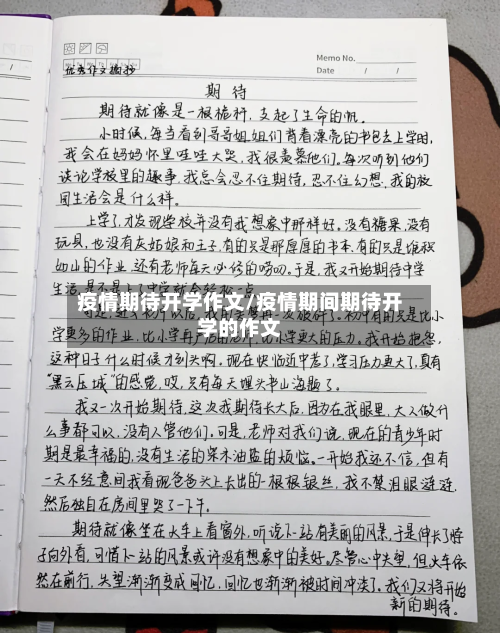 Memo No.
Date / /
优秀作文摘抄
期待
期待就像是一根桅杆,支起了生命的帆。
小时候,每当看到哥哥姐姐们背着漂亮的书包去上学时,
我会在妈妈怀里哇哇大哭,我很羡慕他们。每次听到他们
谈论学校里的趣事,我总会忍不住期待,忍不住幻想,我的校
园生活会是什么样。
上学了,才发现学校并没有我想象中那样好。没有糖果,没有
玩具,也没有灰姑娘和王子,有的只是那厚厚的书本,有的只是堆积
如山的作业,还有老师每天必修的唠叨。于是,我又开始期待中学
生活,是不是上了中学就会轻松一点
疫情期待开学作文/疫情期间期待开
学的作文
学更多的作业,比小学再
比小学更大的压力。我开始抱怨,
这种日子什么时候才到头啊。现在快临近中考了,学习压力更大了,真有
"黑云压城"的感觉,哎,只有每天埋头书山海题了。
我又一次开始期待,这次我期待长大后,因为在我眼里,大人做什
么事都可以,没有人管他们。可是,老师对我们说,现在的青少年时
期是最幸福的,没有生活的柴米油盐的烦恼。一开始我还不信,但有
一天不经意间我看现爸爸头上长出的一根根银丝,我不禁泪眼涟涟,
然后独自在房间里哭了一下午。
期待就像坐在火车上看窗外,听说下一站有美丽的风景,于是伸长了脖
子向外看,可惜下一站的风景或许没有想象中的美好。尽管心中失望,但火车依
然在前行,失望渐渐变成回忆,回忆也渐渐被时间冲淡了。我们又将开始
新的期待。